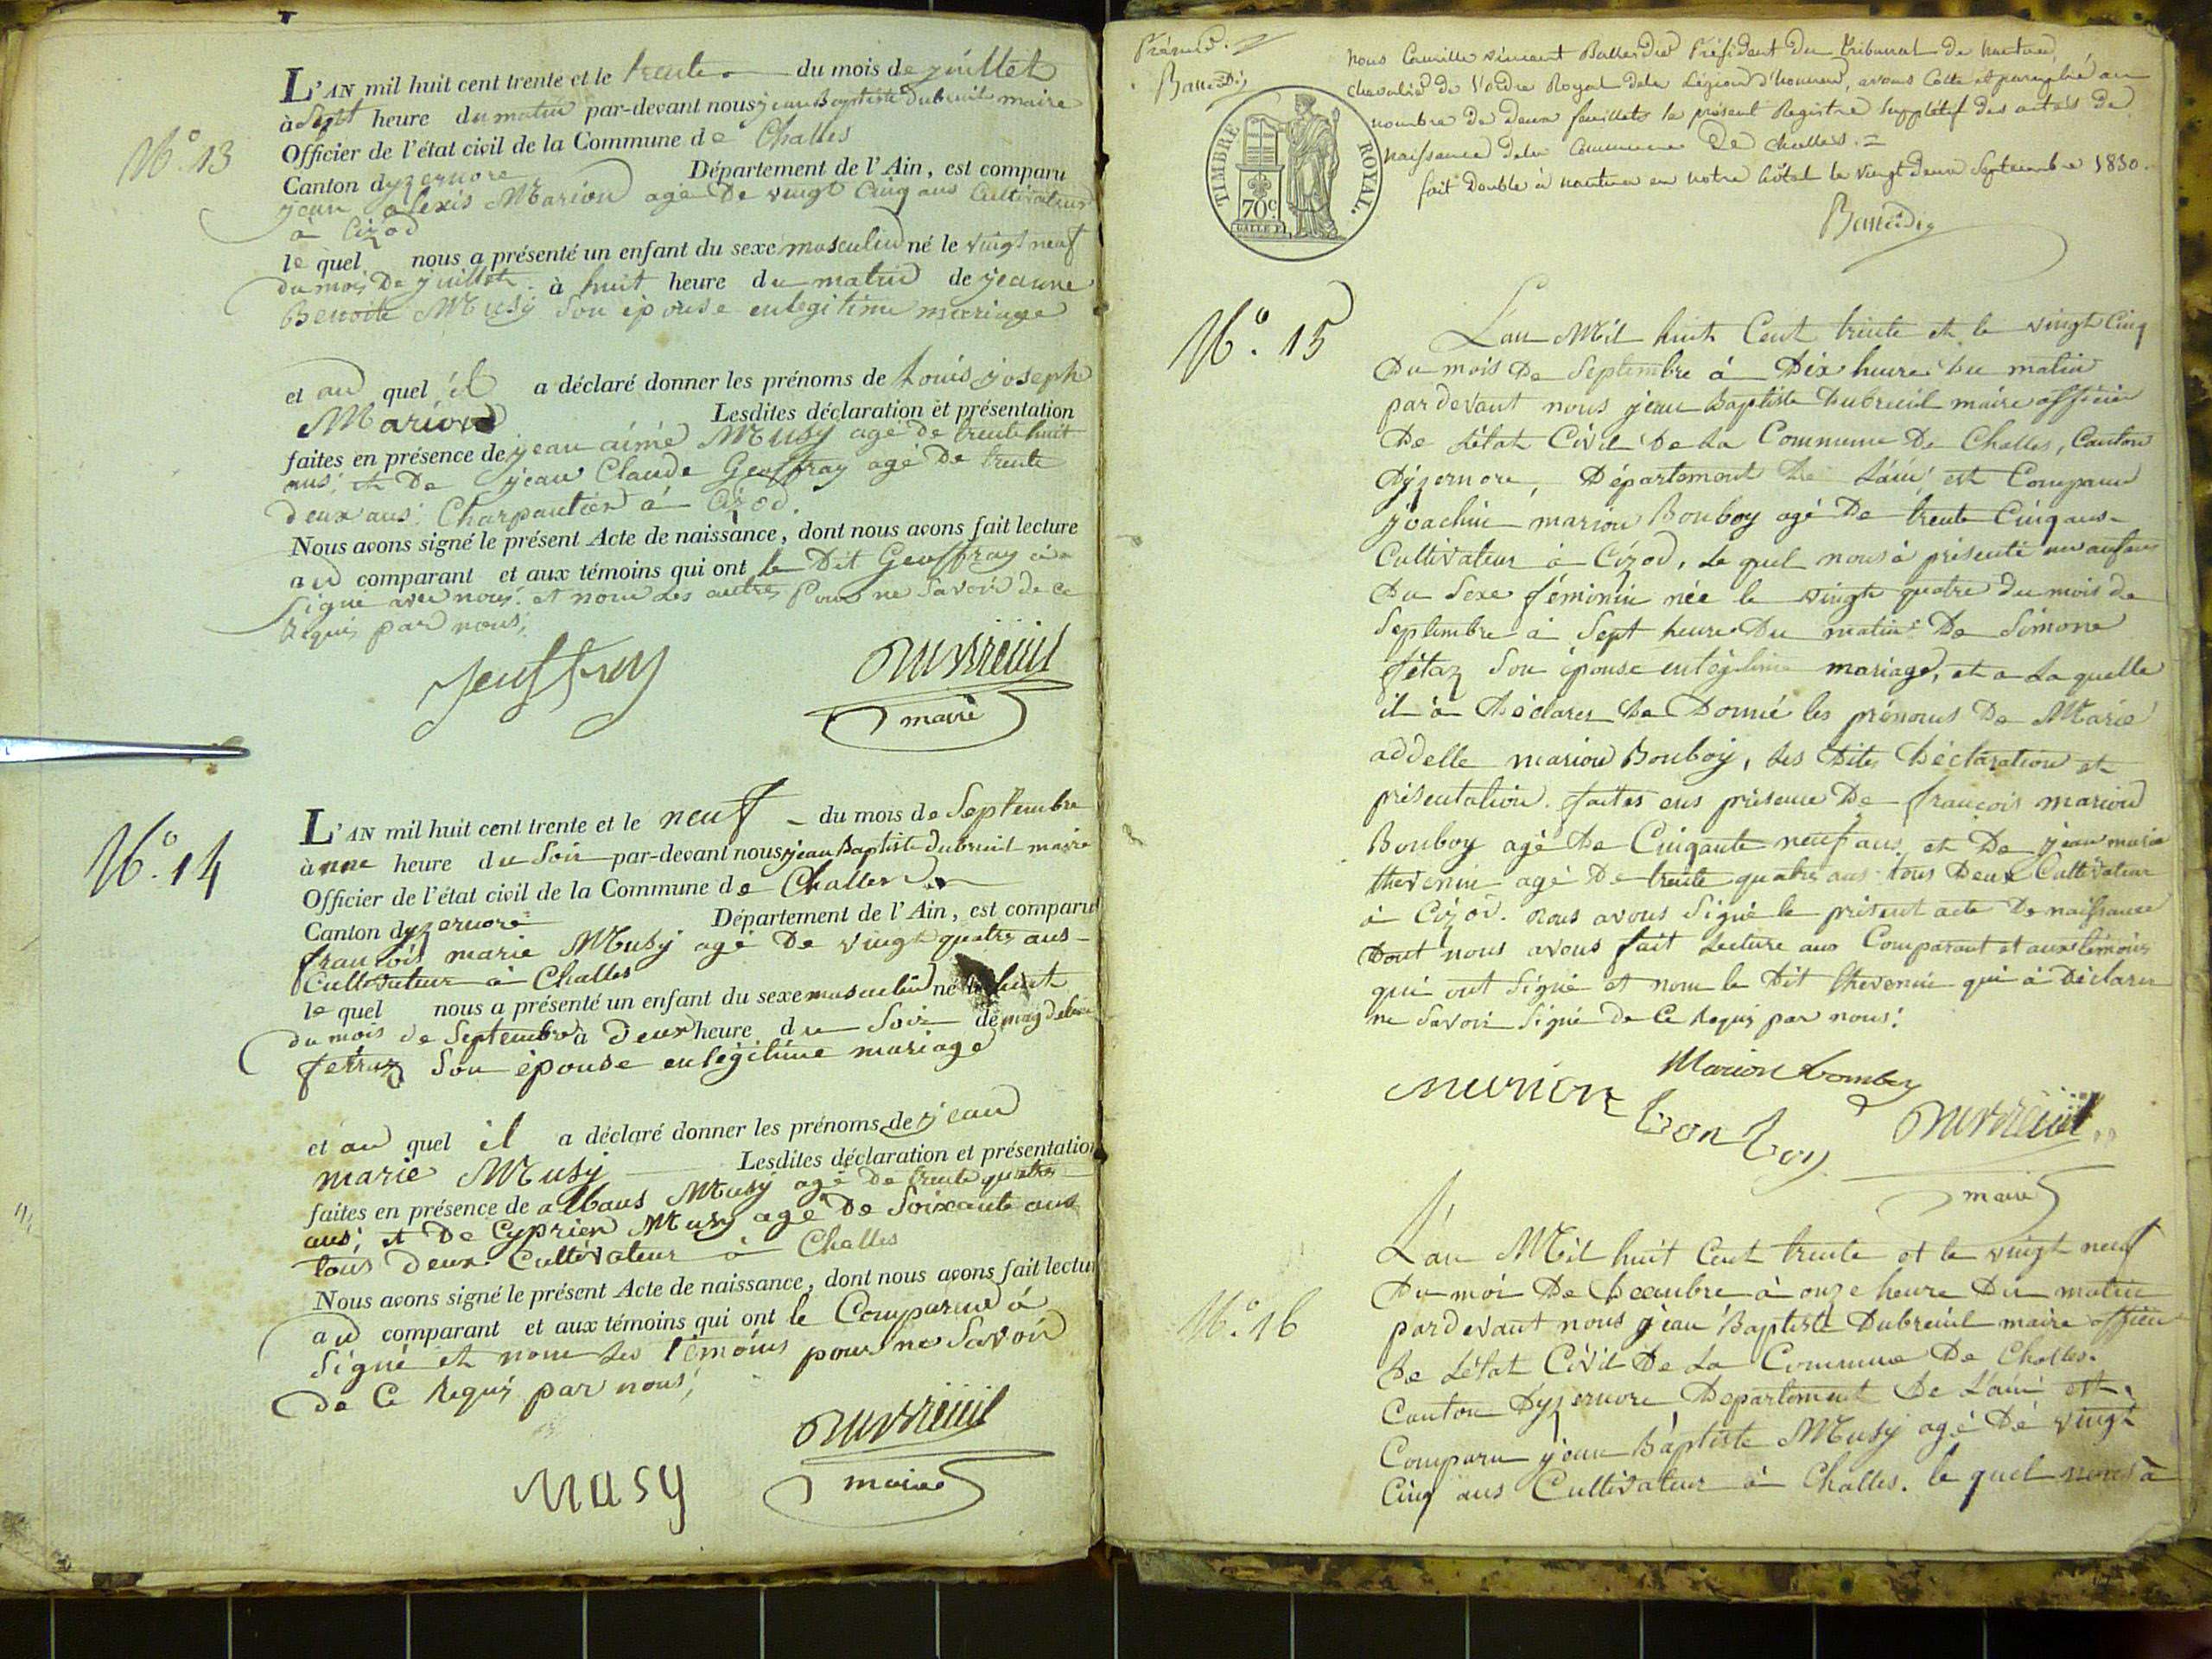 N.° 13
L'AN mil huit cent trente et le trente du mois de juillet
à Sept heure du matin par-devant nous jean Baptiste Dubreuil maire
Officier de l'état civil de la Commune de Challes
Canton dyzernore Département de l'Ain, est comparu
jean alexis Marion agé De vingt Cinq ans Cultivateur
à Cizod
le quel nous a présenté un enfant du sexe masculin né le vingt neuf
du mois De juillet à huit heure du matin de jeanne
Benoite Musy Son épouse enlegitime mariage
et au quel il a déclaré donner les prénoms de Louis joseph
Marion Lesdites déclaration et présentation
faites en présence de jean aimé Musy agé de trente huit
ans, et De jean Claude Geoffray agé De trente
deux ans Charpantier à Cizod.
Nous avons signé le présent Acte de naissance, dont nous avons fait lecture
au comparant et aux témoins qui ont le Dit Geoffray à
Signé avec nous et nom Les autres Pour ne Savoir de ce
Requis par nous;
jeuffray Dubreuil
maire
N.° 14
L'AN mil huit cent trente et le neuf du mois de Septembre
à une heure du Soir par-devant nous jean Baptiste Dubreuil maire
Officier de l'état civil de la Commune de Challes
Canton dyzernore Département de l'Ain, est comparu
francois marie Musy agé De vingt quatre ans
Cultivateur à Challes
le quel nous a présenté un enfant du sexe masculin né le huit
du mois de Septembre à Deux heure du Soir de magdeleine
ferraz Son épouse enlégitime mariage
et au quel il a déclaré donner les prénoms de jean
marie Musy Lesdites déclaration et présentation
faites en présence de albans Musy agé De trente quatre
ans; et De Cyprien Musy agé De Soixante ans
tous Deux Cultivateur à Challes
Nous avons signé le présent Acte de naissance, dont nous avons fait lectur
au comparant et aux témoins qui ont le Comparand à
Signé et nom Les témoins pour ne Savoir
de Ce Requis par nous;
Dubreuil
musy maire
Nous Camille vincent Président du Tribunal de nantua,
chevalier de l'ordre Royal de la Légion d'honneur, avons Cotté et paraphé au
nombre de deux feuillets le présent Registre Supplétif des actes de
naissance de la Commune De Challes. =
fait Double à nantua en notre hôtel le vingt deux Septembre 1830.
TIMBRE ROYAL.
70c.
N.° 15
L'an Mil huit Cent trente et le vingt Cinq
Du mois De Septembre à Dix heure Du matin
pardevant nous jean Baptiste Dubreuil maire officier
De L'état Civil De La Commune De Challes, Canton
Dyzernore, Département De L'ain, est Comparu
joachim marion Bonboy agé De trente Cinq ans
Cultivateur à Cizod, Le quel nous à présenté un enfant
Du Sexe féminin née le vingt quatre du mois de
Septembre à Sept heure Du matin De Simone
fétaz Son épouse enlégitime mariage, et a La quelle
il à Déclarer De Donné les prénoms De Marie
addelle marion Bonboy, Les Dites Déclaration et
présentation. faites ens présence De francois marion
Bonboy agé De Cinqante neuf ans, et De jean marie
thevenin agé De trente quatre ans tous Deux Cultivateur
à Cizod. Nous avons Signé le présent acte De naissance
Dont nous avons fait Lecture aux Comparant et aux témoins
qui ont Signé et nom le Dit thevenin qui à Déclarer
ne Savoir Signé De Ce Requis par nous.
Marion bonboy
marion bonboy Dubreuil
maire
N.° 16
L'an Mil huit Cent trente et le vingt neuf
Du moi De Decembre à onze heure Du matin
pardevant nous jean Baptiste Dubreuil maire officier
De L'état Civil De La Commune De Challes.
Canton Dyzernore Departement De L'ain est
Comparu jean Baptiste Musy agé Dé vingt
Cinq ans Cultivateur à Challes. le quel nous à